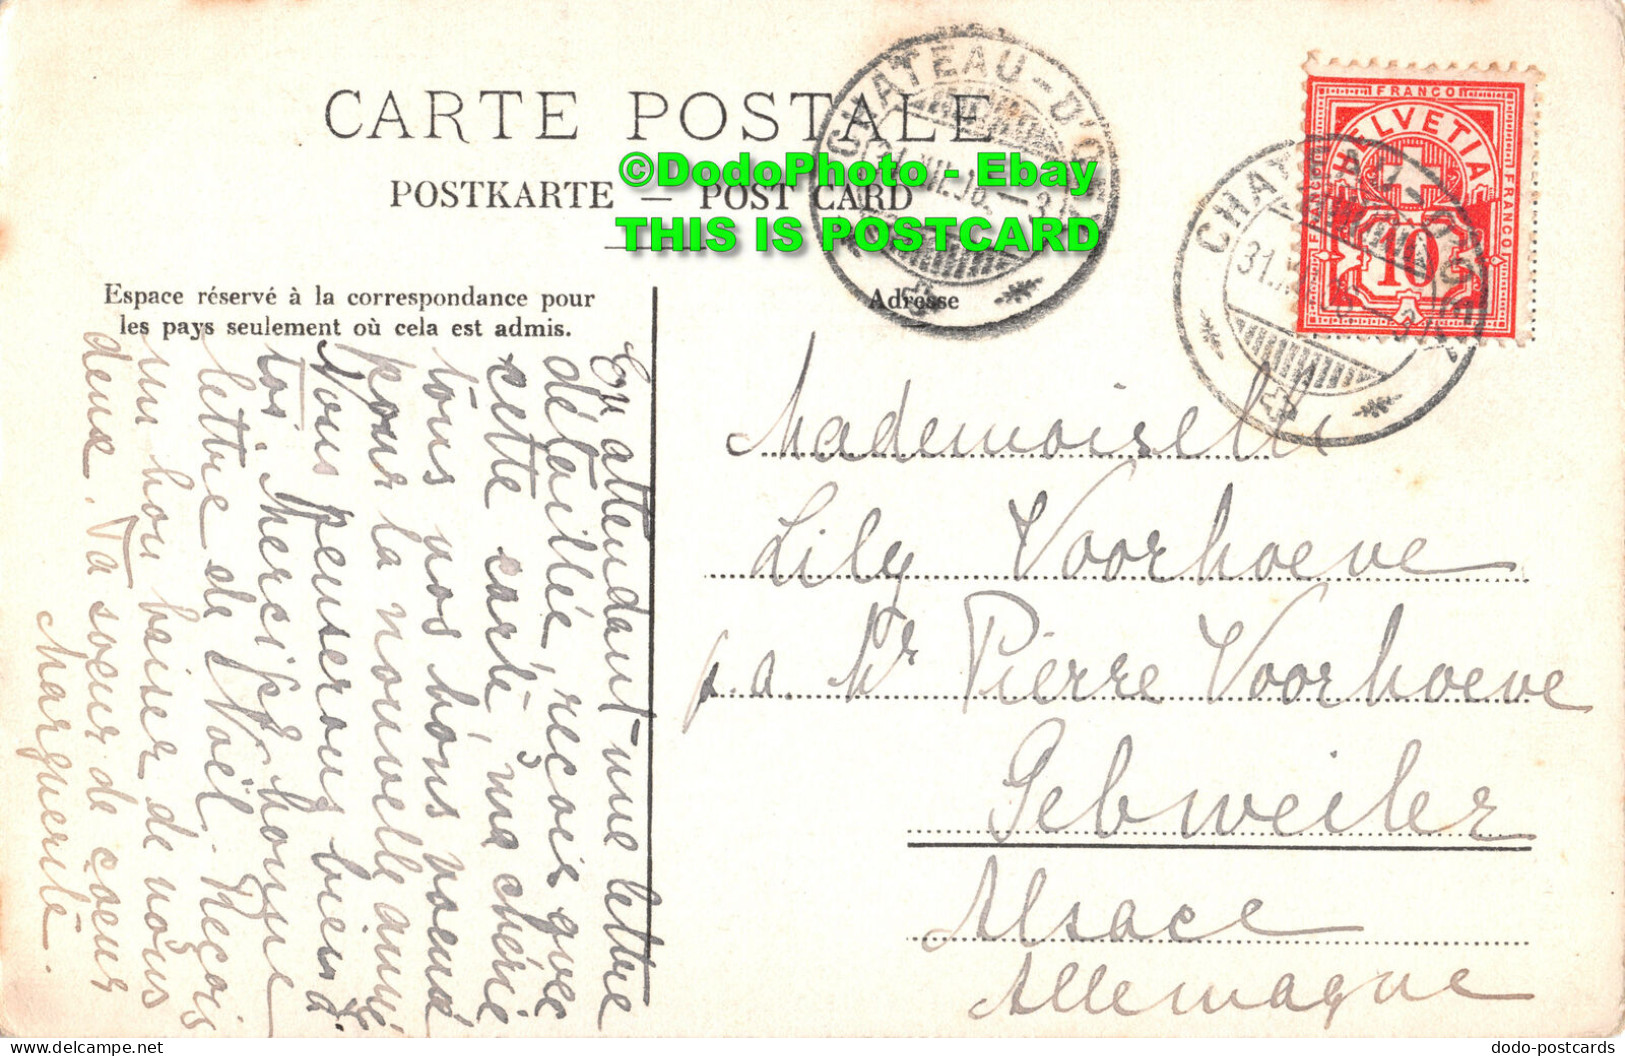 CARTE POSTALE
POSTKARTE — POST CARD
©DodoPhoto - Ebay
THIS IS POSTCARD
CHATEAU-D'OEX
CHATEAU-D'OEX
31.X
FRANCO
FRANCO
FRANCO
HELVETIA
10
Espace réservé à la correspondance pour
les pays seulement où cela est admis.
Adresse
Mademoiselle
Lily Voorhoeve
p.a. Mr Pierre Voorhoeve
Gebweiler
Alsace
Allemagne
En attendant une lettre
détaillée, reçois avec
cette carte, ma chérie
tous nos bons voeux
pour la nouvelle année
Nous penserons bien à
toi. Merci pr bonne
lettre de Noël. Reçois
un bon baiser de nous
deux. Ta soeur de coeur
Marguerite.
dodo-postcards